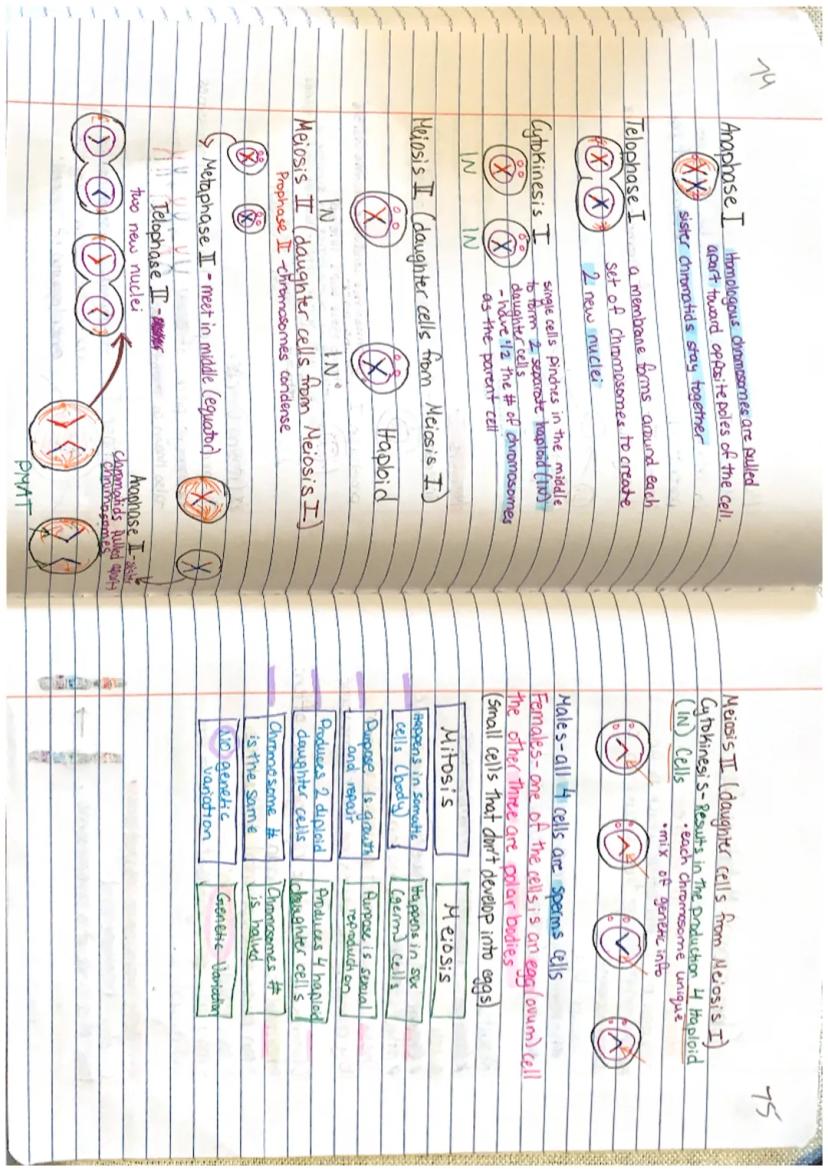 74
Anaphase I Homologous chromosomes are pulled
apart toward opposite poles of the cell.
sister chromatids stay together
Telophase I a membrane forms around each
set of chromosomes to create
2 new nuclei
Cytokinesis I single cells pinches in the middle
to form 2 separate haploid (1N)
daughter cells
- have 1/2 the # of chromosomes
as the parent cell
1N 1N
Meiosis II (daughter cells from Meiosis I)
Haploid
1N 1N
Meiosis II (daughter cells from Meiosis I)
Prophase II - chromosomes condense
Metaphase II - meet in middle (equator)
Anaphase II -
chromatids pulled apart
chromosomes
Telophase II -
two new nuclei
PMAT
75
Meiosis II (daughter cells from Meiosis I)
Cytokinesis - Results in the production 4 Haploid
(1N) Cells
• each chromosome unique
• mix of genetic info
Males - all 4 cells are sperms cells
Females - one of the cells is an egg (ovum) cell
the other three are polar bodies
(small cells that don't develop into eggs)
Mitosis Meiosis
Happens in somatic Happens in sex
cells (body) (germ) cells
Purpose is growth Purpose is sexual
and repair reproduction
Produces 2 diploid Produces 4 haploid
daughter cells daughter cells
Chromosome # Chromosomes #
is the same is halved
NO genetic Genetic Variation
variation